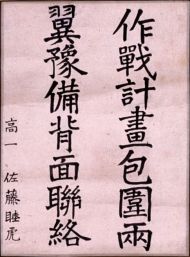 作戰計畫包圍兩
翼豫備背面聯絡
高一 佐藤睦虎